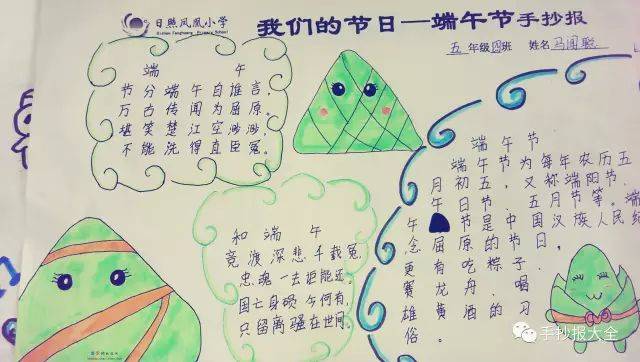 日照凤凰小学
Rizhao Fenghuang Primary School
我们的节日—端午节手抄报
五年级四班 姓名马闻聪
端 午
节分端午自谁言，
万古传闻为屈原。
堪笑楚江空渺渺，
不能洗得直臣冤。
和端午
竞渡深悲千载冤，
忠魂一去讵能还。
国亡身殒今何有，
只留离骚在世间。
端午节
端午节为每年农历五
月初五，又称端阳节、
午日节、五月节等。端
午节是中国汉族人民纪
念屈原的节日，
更有吃粽子，
赛龙舟，喝
雄黄酒的习
俗。
手抄报大全